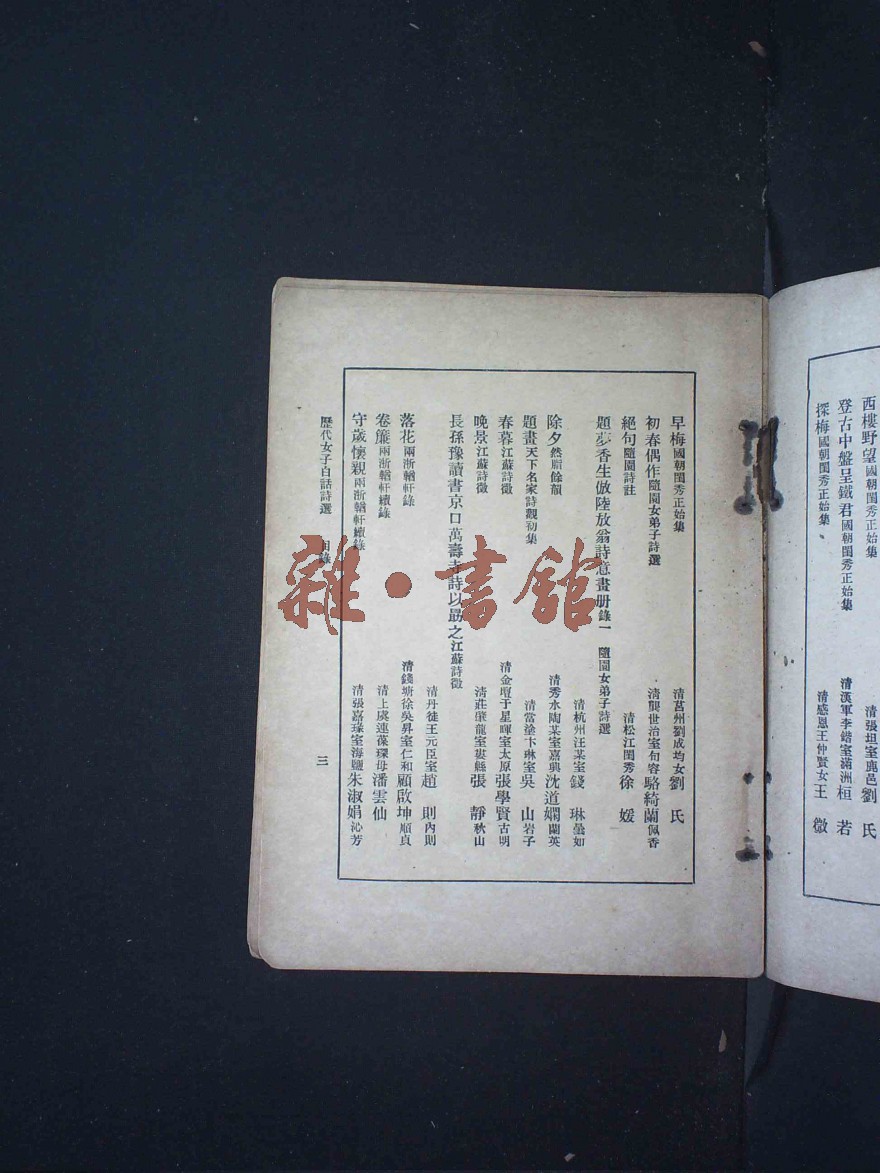 西樓野望國朝閨秀正始集　清張坦室鹿邑劉氏
登古中盤呈鐵君國朝閨秀正始集　清漢軍李鍇室滿洲桓若
探梅國朝閨秀正始集　清感恩王仲賢女王微
早梅國朝閨秀正始集　清莒州劉成均女劉氏
初春偶作隨園女弟子詩選　清龔世治室句容駱綺蘭佩香
絕句隨園詩註　清松江閨秀徐媛
題夢香生倣陸放翁詩意畫册錄一　隨園女弟子詩選
清杭州汪某室錢琳曇如
除夕然脂餘韻　清秀水陶某室嘉興沈道嫻蘭英
題畫天下名家詩觀初集　清當塗卞琳室吳山岩子
春暮江蘇詩徵　清金壇于星暉室太原張學賢古明
晚景江蘇詩徵　清莊肇龍室婁縣張靜秋山
長孫豫讀書京口萬壽寺詩以勗之江蘇詩徵
清丹徒王元臣室趙則內則
落花兩浙輶軒錄　清錢塘徐吳昇室仁和顧啟坤順貞
卷簾兩浙輶軒續錄　清上虞連葆璞母潘雲仙
守歲懷親兩浙輶軒續錄　清張嘉瑑室海鹽朱淑娟沁芳
歷代女子白話詩選　目錄　三
雜·書館